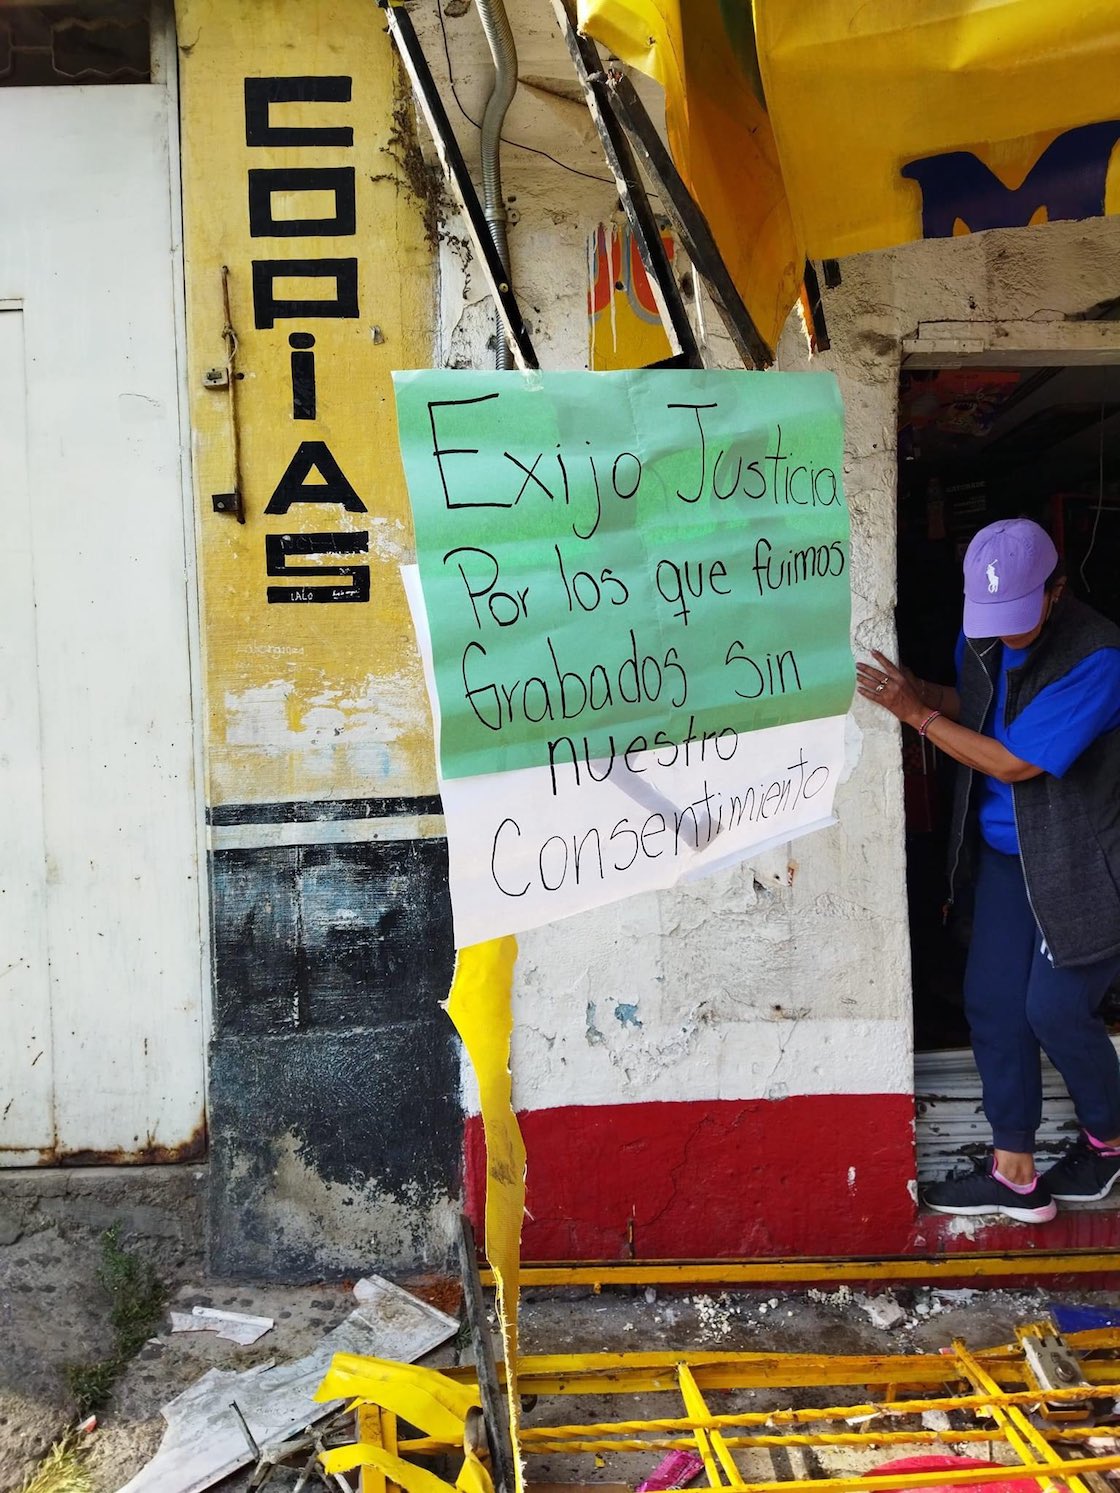 COPiAS
LALO
M
Exijo Justicia
Por los que fuimos
Grabados Sin
nuestro
Consentimiento